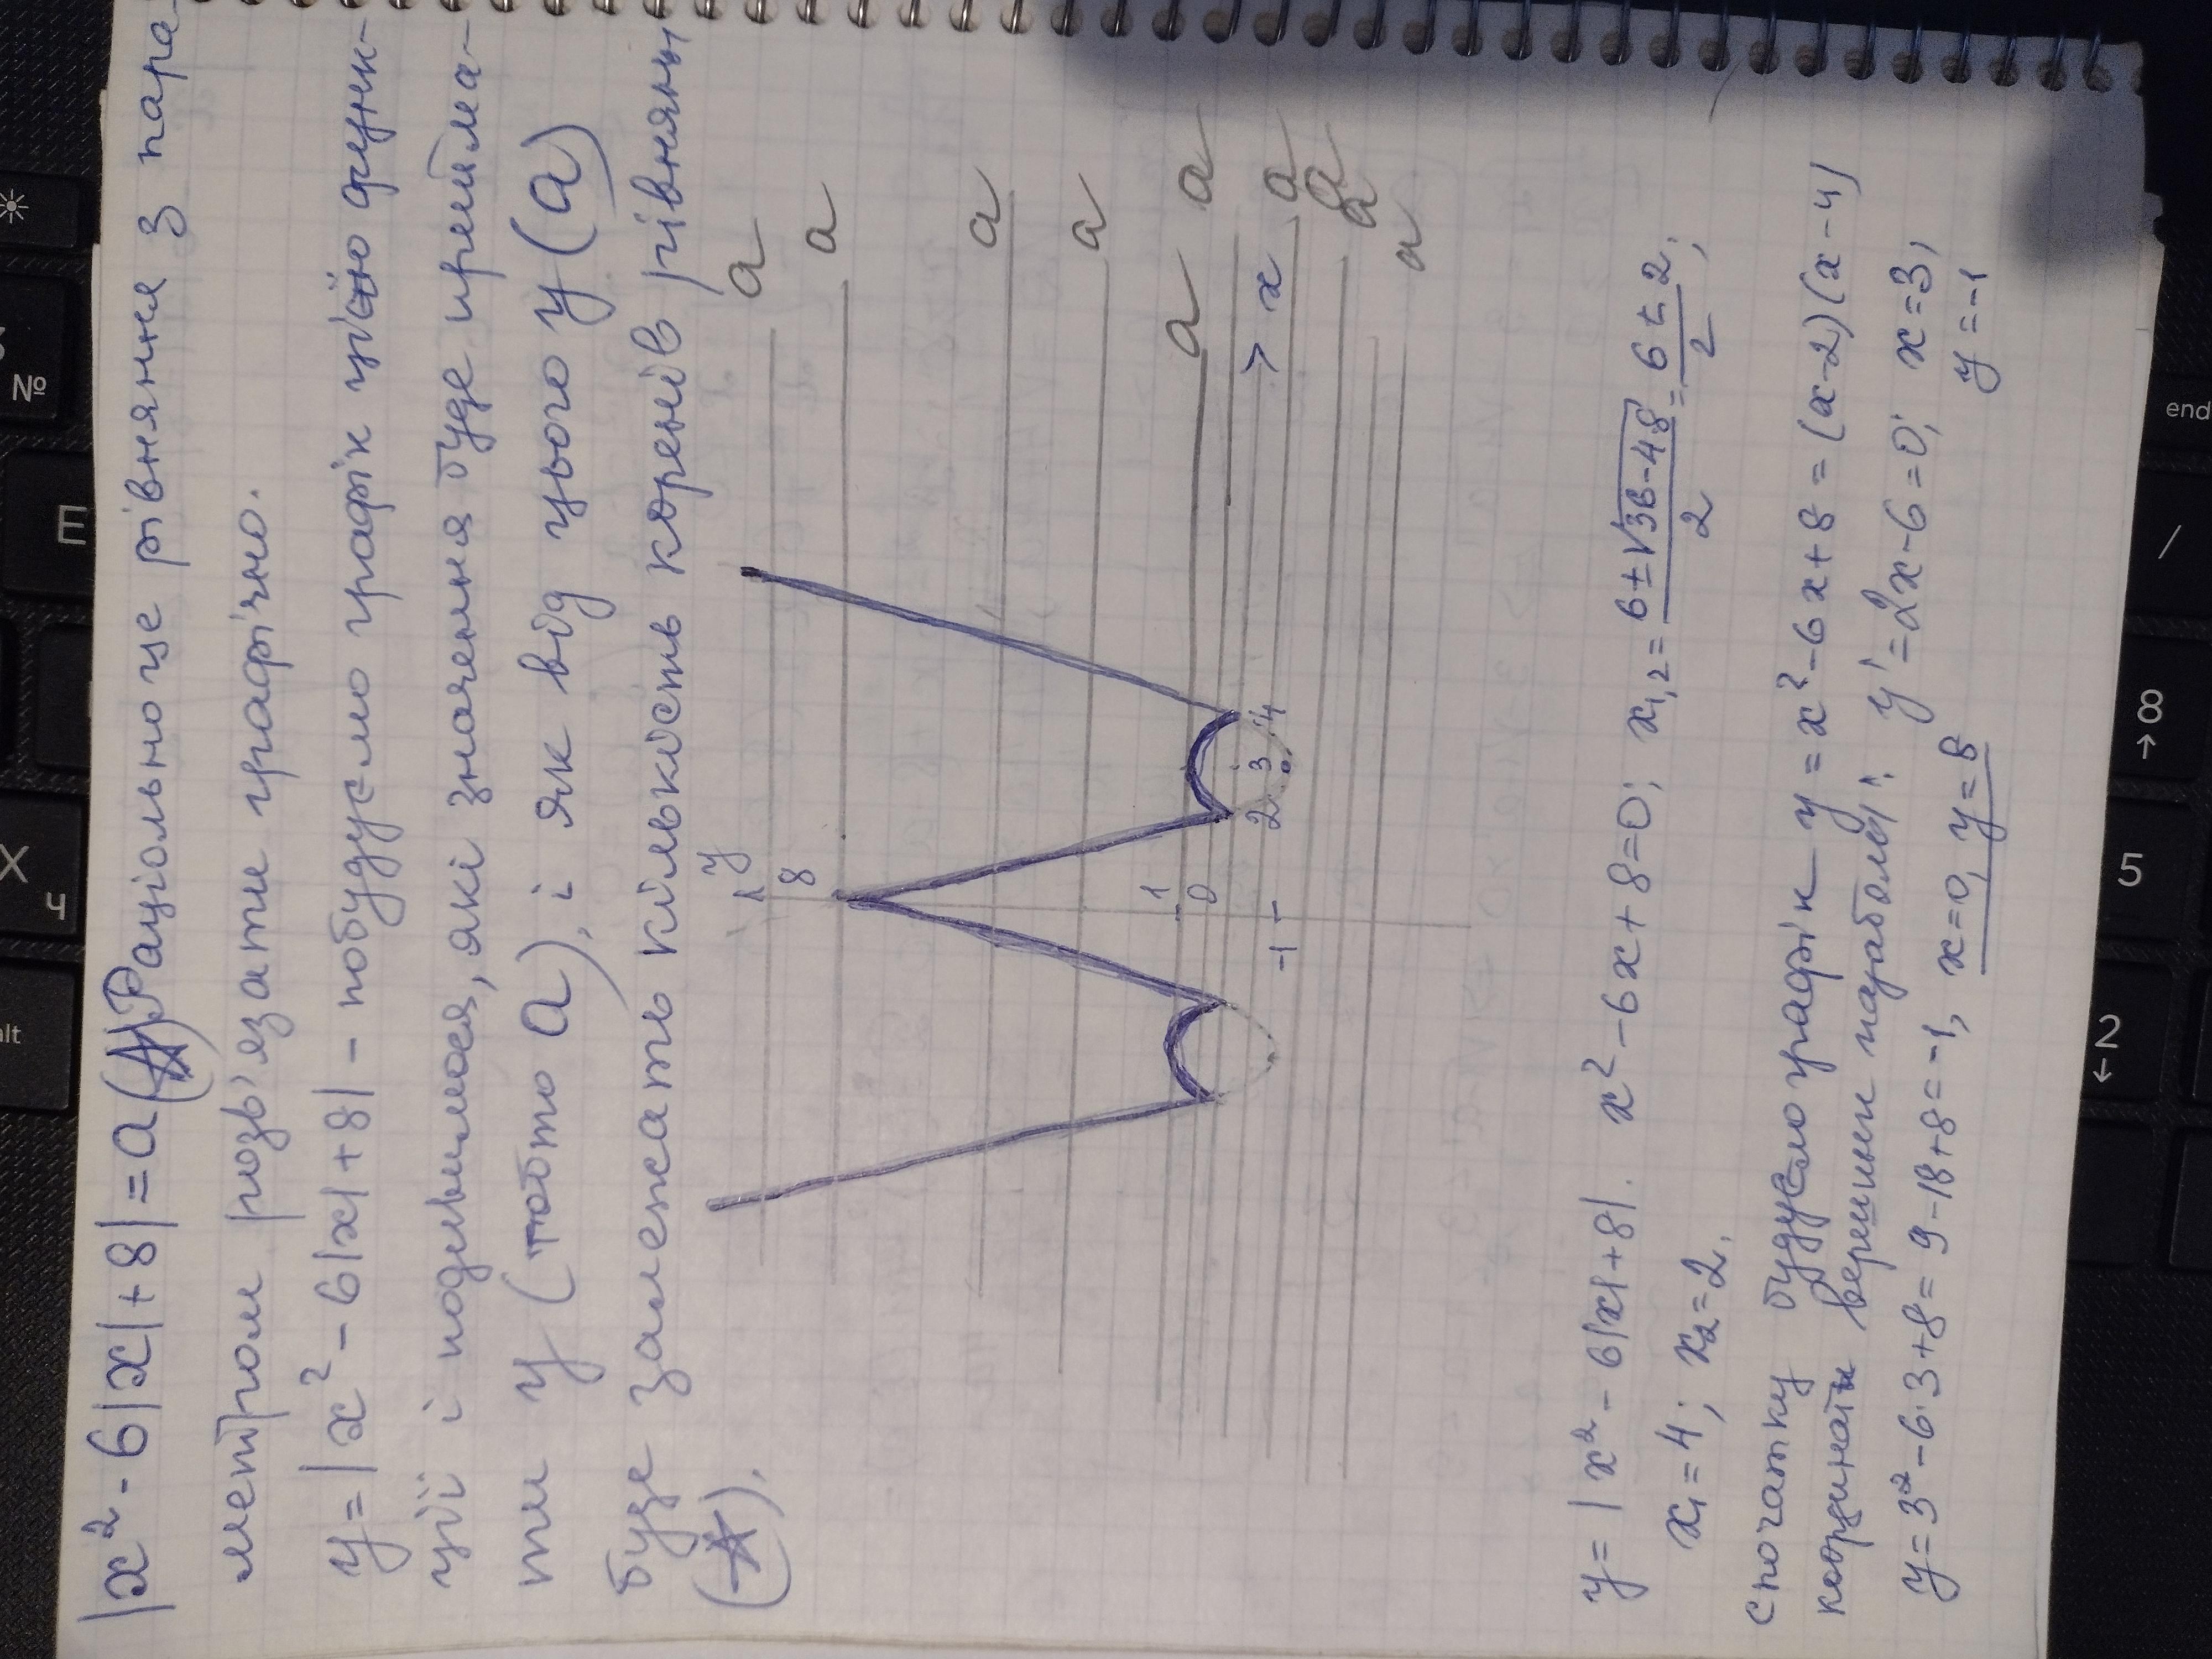 |x² - 6|x| + 8| = a (*) Раціонально це рівняння з пара-
метром розв'язати графічно.
y = |x² - 6|x| + 8| - побудуємо графік цією функ-
ції і подивимося, які значення буде прийма-
ти y (тобто a), і як від цього y (a)
буде залежать кількість коренів рівнянь
(*).
a
a
a
a
a
a
a
a
a
a
y
8
1
0
-1
2
3
4
x
y = |x² - 6|x| + 8|. x² - 6x + 8 = 0; x₁,₂ = 6 ± √36-48 / 2 = 6 ± 2 / 2;
x₁ = 4; x₂ = 2.
Спочатку будуємо графік y = x² - 6x + 8 = (x-2)(x-4)
координаты вершини параболи: y' = 2x - 6 = 0; x = 3,
y = 3² - 6·3 + 8 = 9 - 18 + 8 = -1, x = 0, y = 8 y = -1
№
E
X
Ч
alt
end
/
8
5
←2